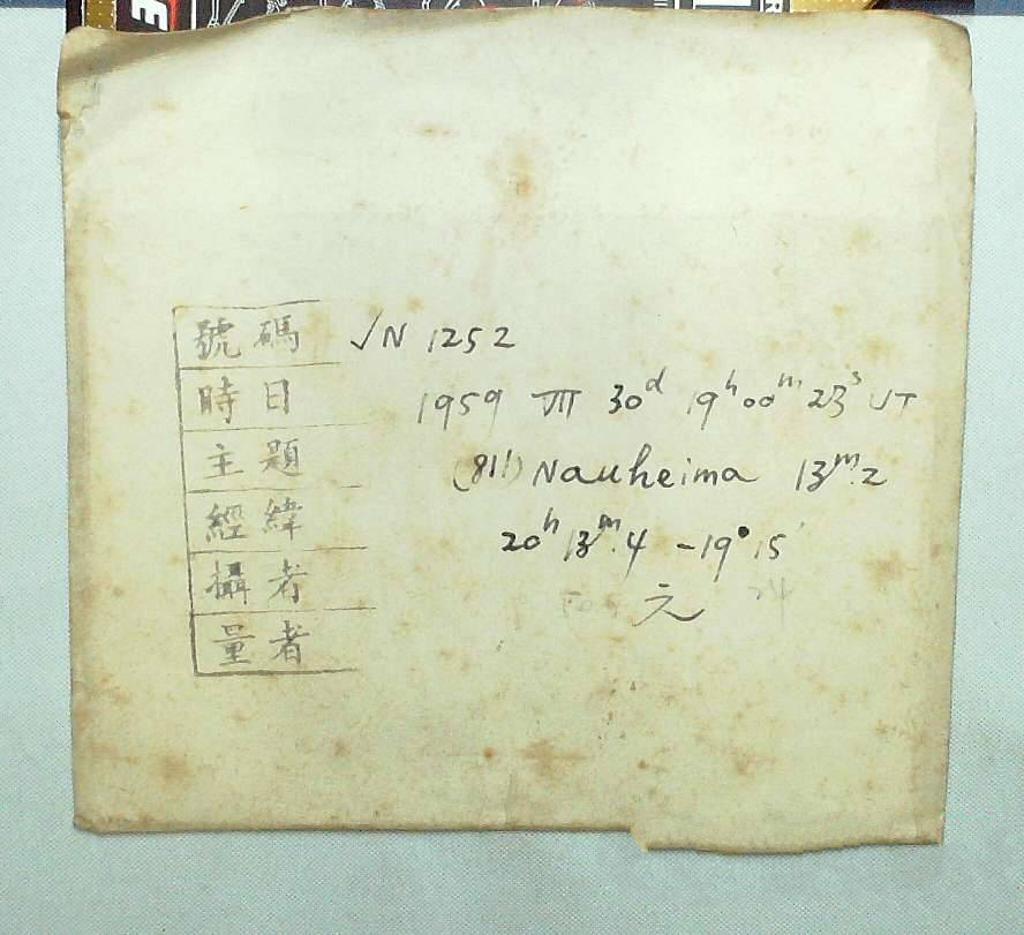 號碼 √N 1252
時日 1959 VII 30ᵈ 19ʰ00ᵐ23ˢ UT
主題 (811) Nauheima 13ᵐ.2
經緯 20ʰ13ᵐ.4 -19°15'
攝者 元
量者